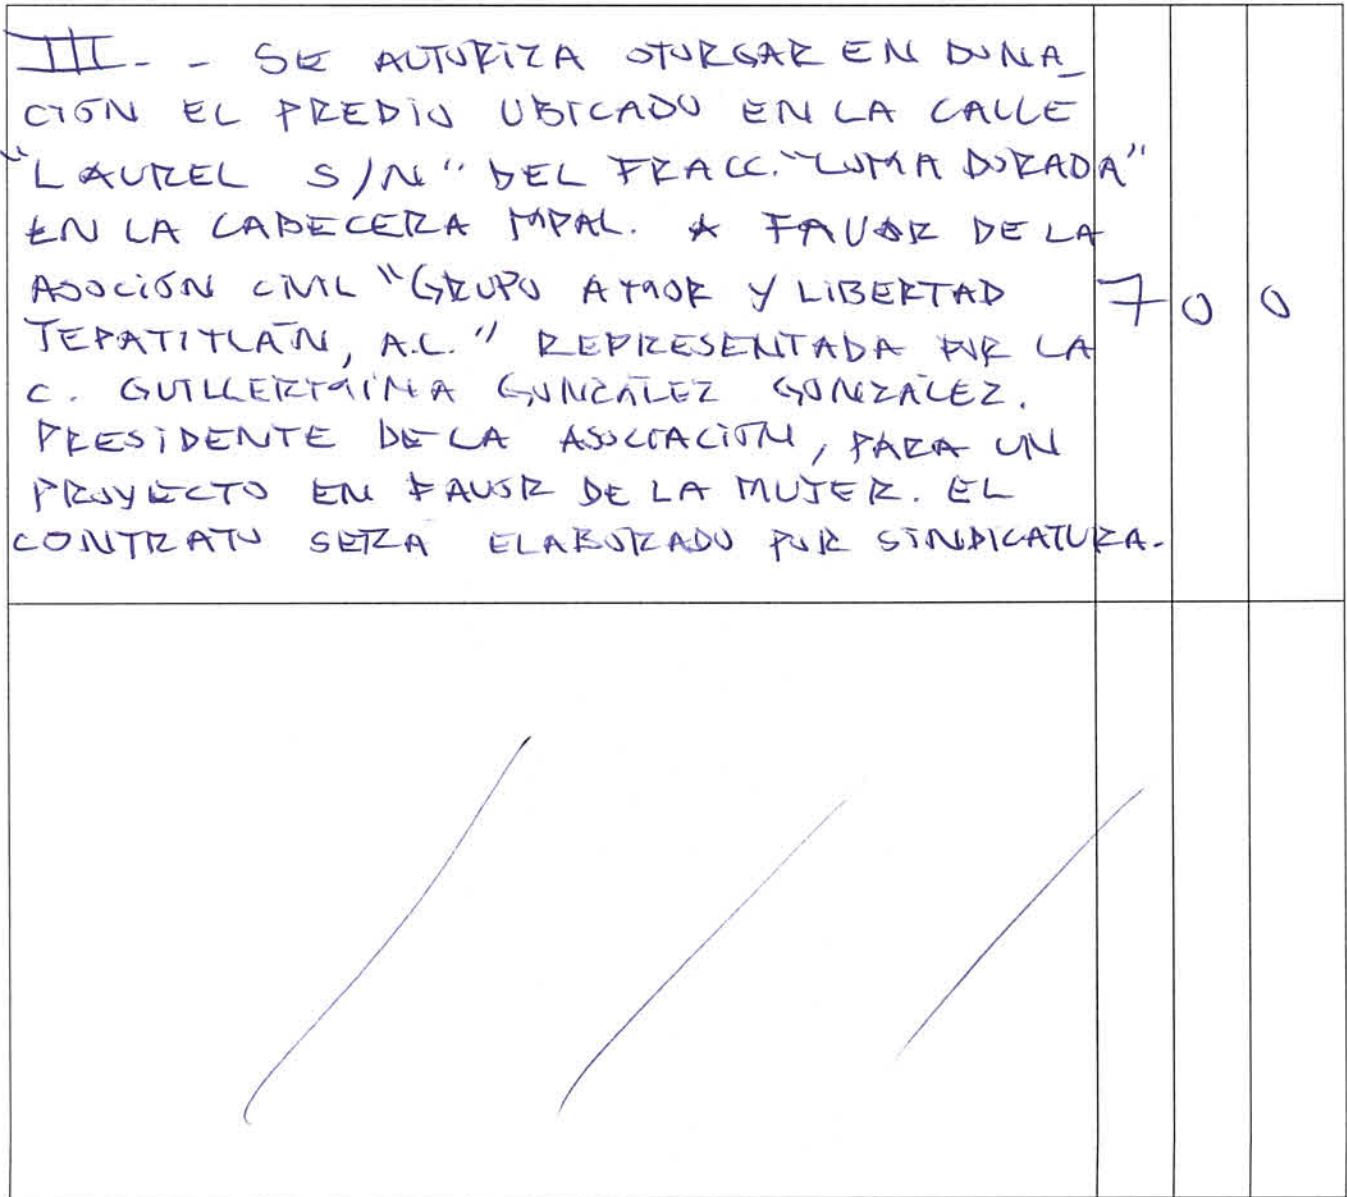 III.- - SE AUTORIZA OTORGAR EN DONA_
CIÓN EL PREDIO UBICADO EN LA CALLE
"LAUREL S/N" DEL FRACC. "LOMA DORADA"
EN LA CABECERA MPAL. A FAVOR DE LA
ASOCIÓN CIVIL "GRUPO AMOR Y LIBERTAD
TEPATITLÁN, A.C." REPRESENTADA POR LA
C. GUILLERMINA GONZÁLEZ GONZÁLEZ.
PRESIDENTE DE LA ASOCIACIÓN, PARA UN
PROYECTO EN FAVOR DE LA MUJER. EL
CONTRATO SERA ELABORADO POR SINDICATURA.
7 0 0